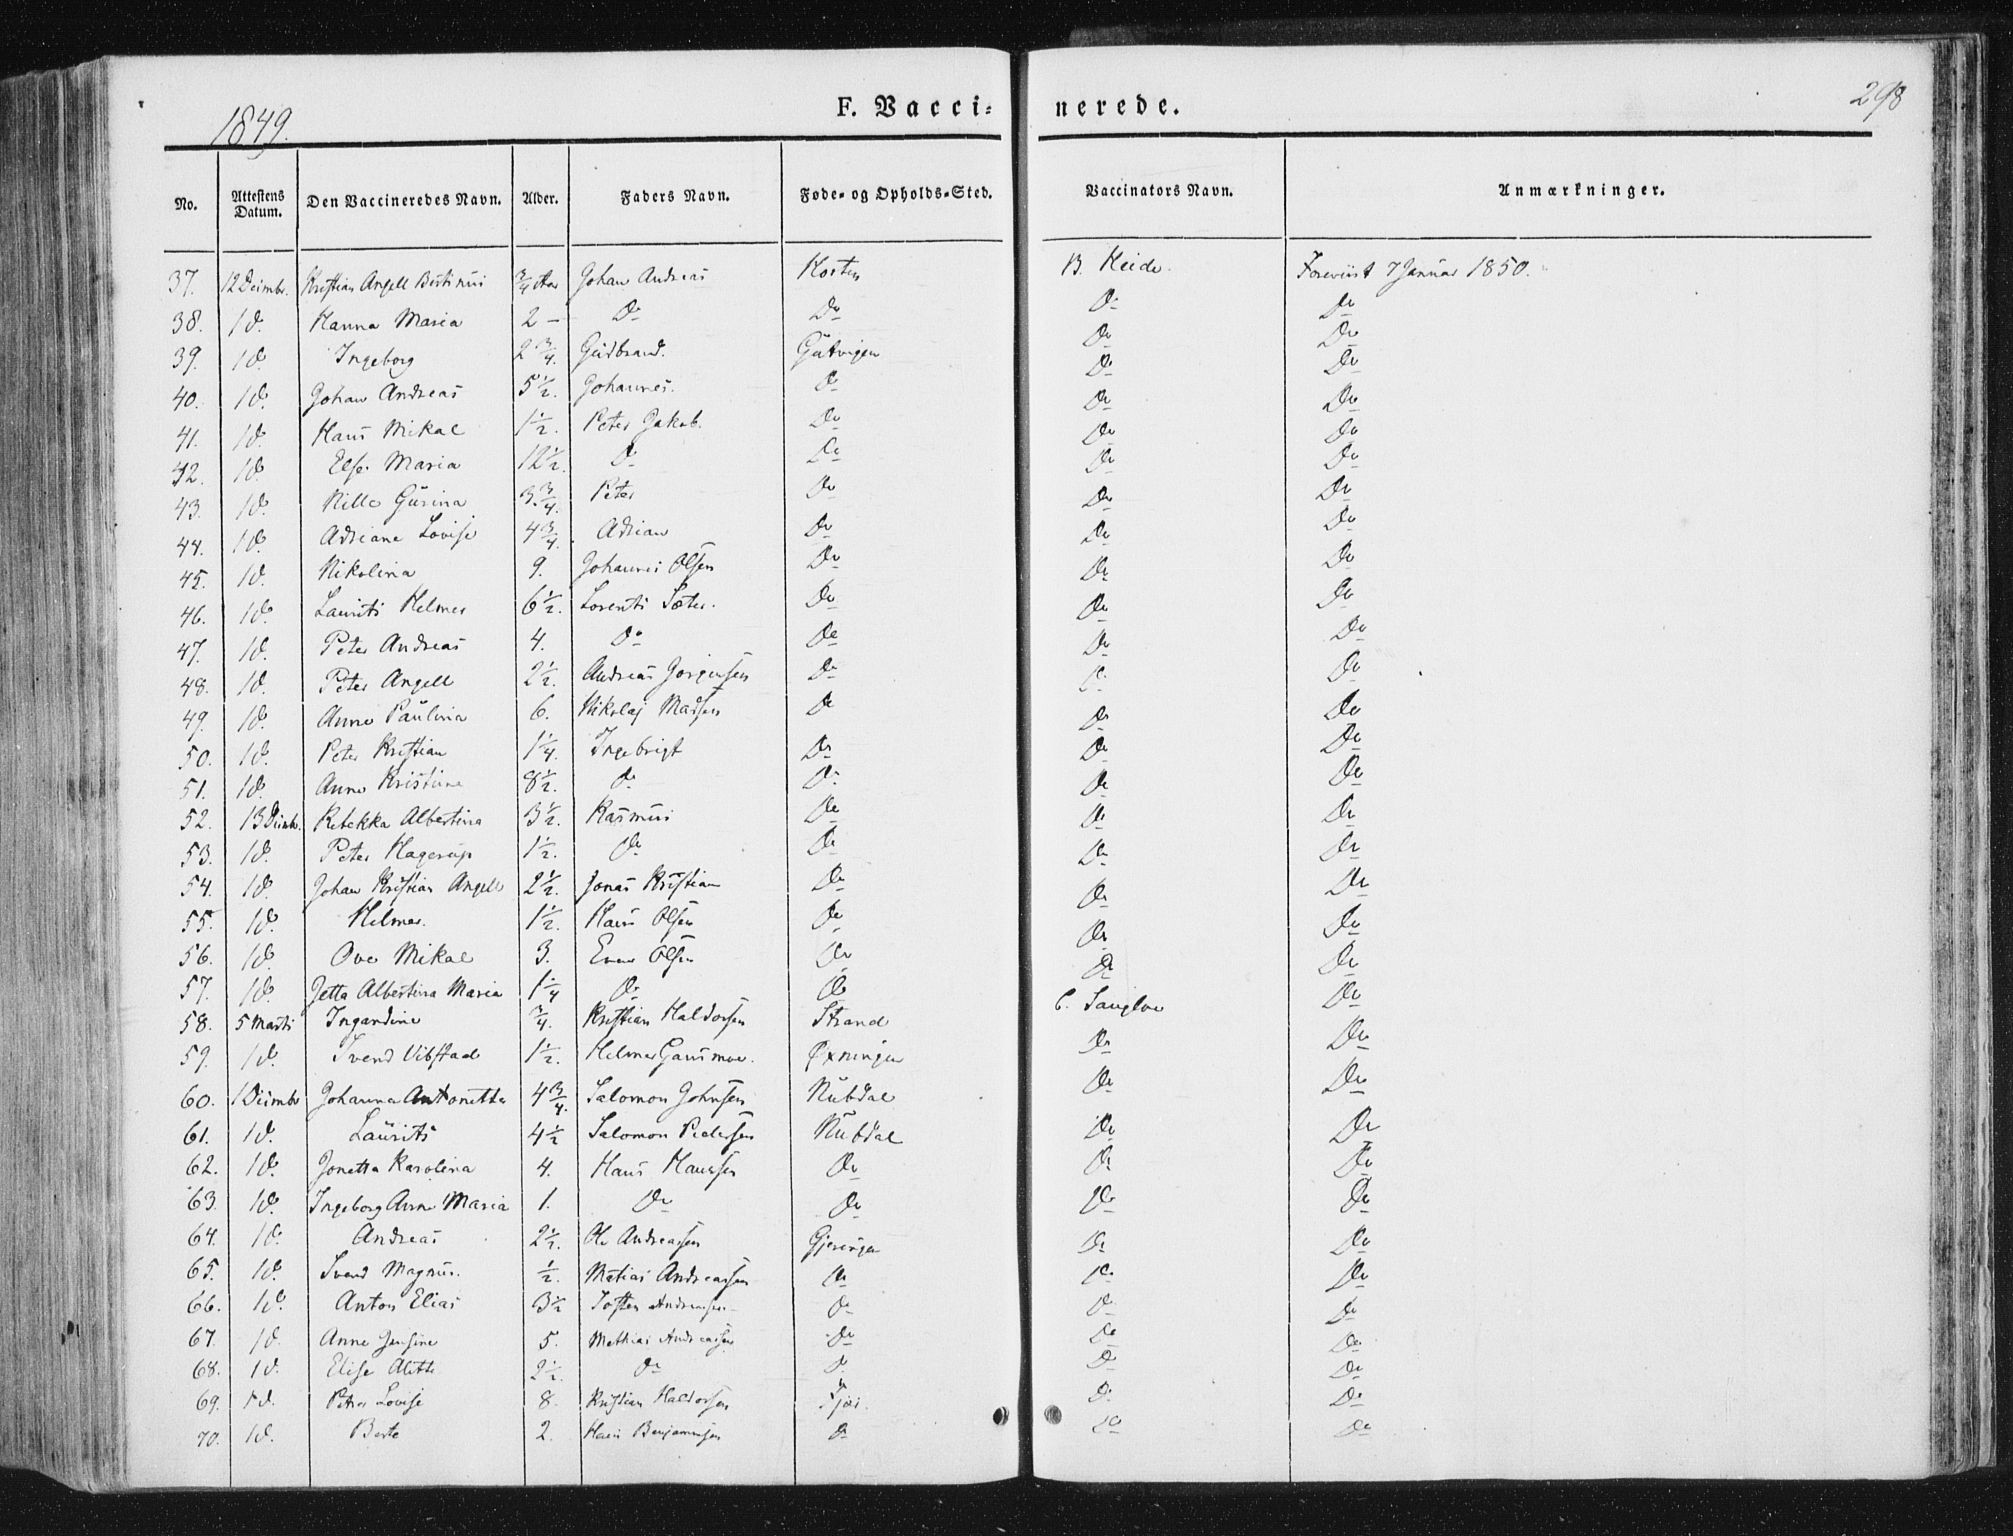 1849.
F. Vaccinerede.
298
No. | Attestens Datum. | Den Vaccineredes Navn. | Alder. | Faders Navn. | Føde- og Opholds-Sted. | Vaccinators Navn. | Anmærkninger.
37. | 12 Decimbr. | Kristian Angell Bertinus | 3/4 Aar | Johan Andreas | | B. Heide. | Foreviist 7 Januar 1850.
38. | 1 do. | Hanna Maria | 2 – | Do | Do | Do | Do
39. | 1 do. | Ingeborg | 2 3/4. | Gudbrand. | Gutvigen | Do | Do
40. | 1 do. | Johan Andreas | 5 1/2. | Johannes. | Do | Do | Do
41. | 1 do. | Hans Mikal | 1 1/2. | Peter Jakob. | Do | Do | Do
42. | 1 do. | Else Maria | 12 1/2. | Do | Do | Do | Do
43. | 1 do. | Nille Gurina | 3 3/4. | Peter | Do | Do | Do
44. | 1 do. | Adriane Lovise | 4 3/4. | Adrian | Do | Do | Do
45. | 1 do. | Nikolina | 9. | Johannes Olsen | Do | Do | Do
46. | 1 do. | Laurits Helmer | 6 1/2. | Lorents Sæter. | Do | Do | Do
47. | 1 do. | Peter Andreas | 4. | Do | Do | Do | Do
48. | 1 do. | Peter Angell | 2 1/2. | Andreas Jørgensen | Do | Do | Do
49. | 1 do. | Anne Paulina | 6. | Nikolaj Madsen | Do | Do | Do
50. | 1 do. | Peter Kristian | 1 1/4. | Ingebrigt | Do | Do | Do
51. | 1 do. | Anne Kristine | 8 1/2. | Do | Do | Do | Do
52. | 13 Decimbr. | Rebekka Albertina | 3 1/2. | Rasmus | Do | Do | Do
53. | 1 do. | Peter Hagerup | 1 1/2. | Do | Do | Do | Do
54. | 1 do. | Johan Kristian Angell | 2 1/2. | Jonas Kristian | Do | Do | Do
55. | 1 do. | Helmer. | 1 1/2. | Hans Olsen | Do | Do | Do
56. | 1 do. | Ove Mikal | 3. | Even Olsen | Do | Do | Do
57. | 1 do. | Jetta Albertina Maria | 1 1/4 | Do | Do | Do | Do
58. | 5 Marts | Ingardine | 3/4. | Kristian Haldorsen | Strand | C. | Do
59. | 1 do. | Svend Vibstad | 1 1/2. | Helmer Gansmoe. | Øxningen | Do | Do
60. | 1 Decimbr | Johanna Antonette | 4 3/4. | Salomon Johnsen | Nubdal | Do | Do
61. | 1 do. | Laurits | 4 1/2 | Salomon Pedersen | Nubdal | Do | Do
62. | 1 do. | Jonetta Karolina | 4. | Hans Hansen | Do | Do | Do
63. | 1 do. | Ingeborg Anne Maria | 1. | Do | Do | Do | Do
64. | 1 do. | Andreas | 2 1/2. | Ole Andreassen | Gjeringen | Do | Do
65. | 1 do. | Svend Magnus. | 1/2. | Matias Andreassen | Do | Do | Do
66. | 1 do. | Anton Elias | 3 1/2 | Tosten Andreassen | Do | Do | Do
67. | 1 do. | Anne Jensine | 5. | Mathias Andreassen | Do | Do | Do
68. | 1 do. | Elise Alette | 2 1/2. | Do | Do | Do | Do
69. | 1 do. | Petra Lovise | 8. | Kristian Haldorsen | | Do | Do
70. | 1 do. | Berte | 2. | Hans Benjaminsen | Do | Do | Do